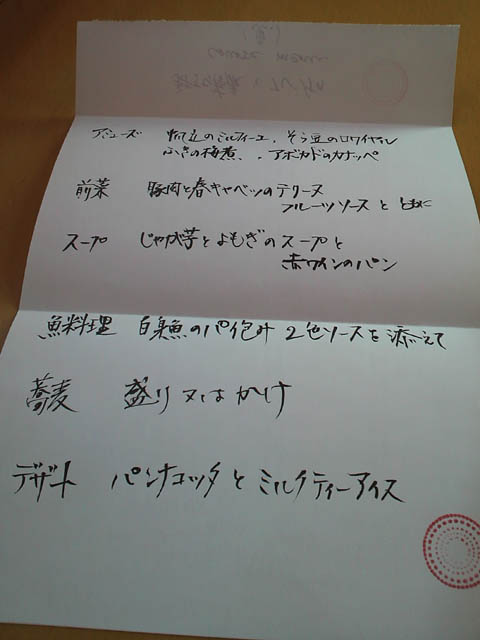 アミューズ 帆立のミルフィーユ、そら豆のロワイヤル
ふきの梅煮、アボカドのカナッペ
前菜 豚肉と春キャベツのテリーヌ
フルーツソースとともに
スープ じゃが芋とよもぎのスープと
赤ワインのパン
魚料理 白身魚のパイ包み 2色ソースを添えて
蕎麦 盛り又はかけ
デザート パンナコッタとミルクティーアイス